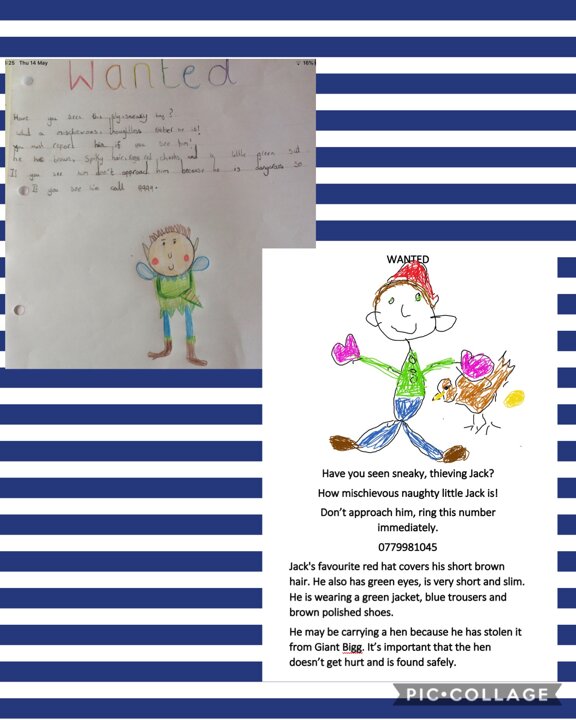 :25 Thu 14 May
16%
Wanted
Have you seen this boy?
what a mischievous, thoughtless he is!
you must report him if you see him!
he has brown, spiky hair, red cheeks, and a little green suit.
If you see him don't approach him because he is dangerous so
If you see him call 9999.
WANTED
Have you seen sneaky, thieving Jack?
How mischievous naughty little Jack is!
Don't approach him, ring this number
immediately.
0779981045
Jack's favourite red hat covers his short brown
hair. He also has green eyes, is very short and slim.
He is wearing a green jacket, blue trousers and
brown polished shoes.
He may be carrying a hen because he has stolen it
from Giant Bigg. It's important that the hen
doesn't get hurt and is found safely.
PIC•COLLAGE